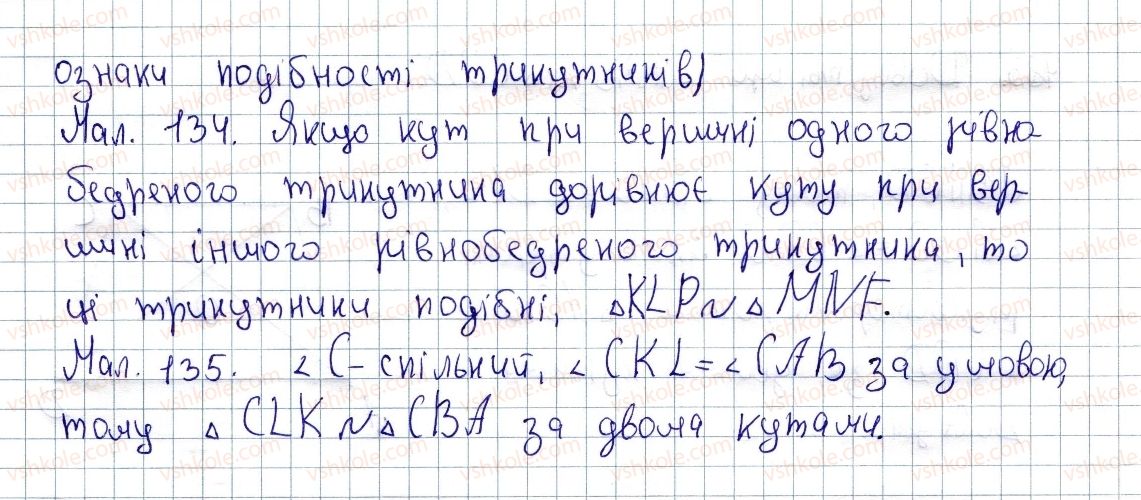 ознаки подібності трикутників)
Мал. 134. Якщо кут при вершині одного рівно
бедреного трикутника дорівнює куту при вер
шині іншого рівнобедреного трикутника, то
ці трикутники подібні, △KLP ~ △MNF.
Мал. 135. ∠C – спільний, ∠CKL = ∠CAB за умовою,
тому △CLK ~ △CBA за двома кутами.